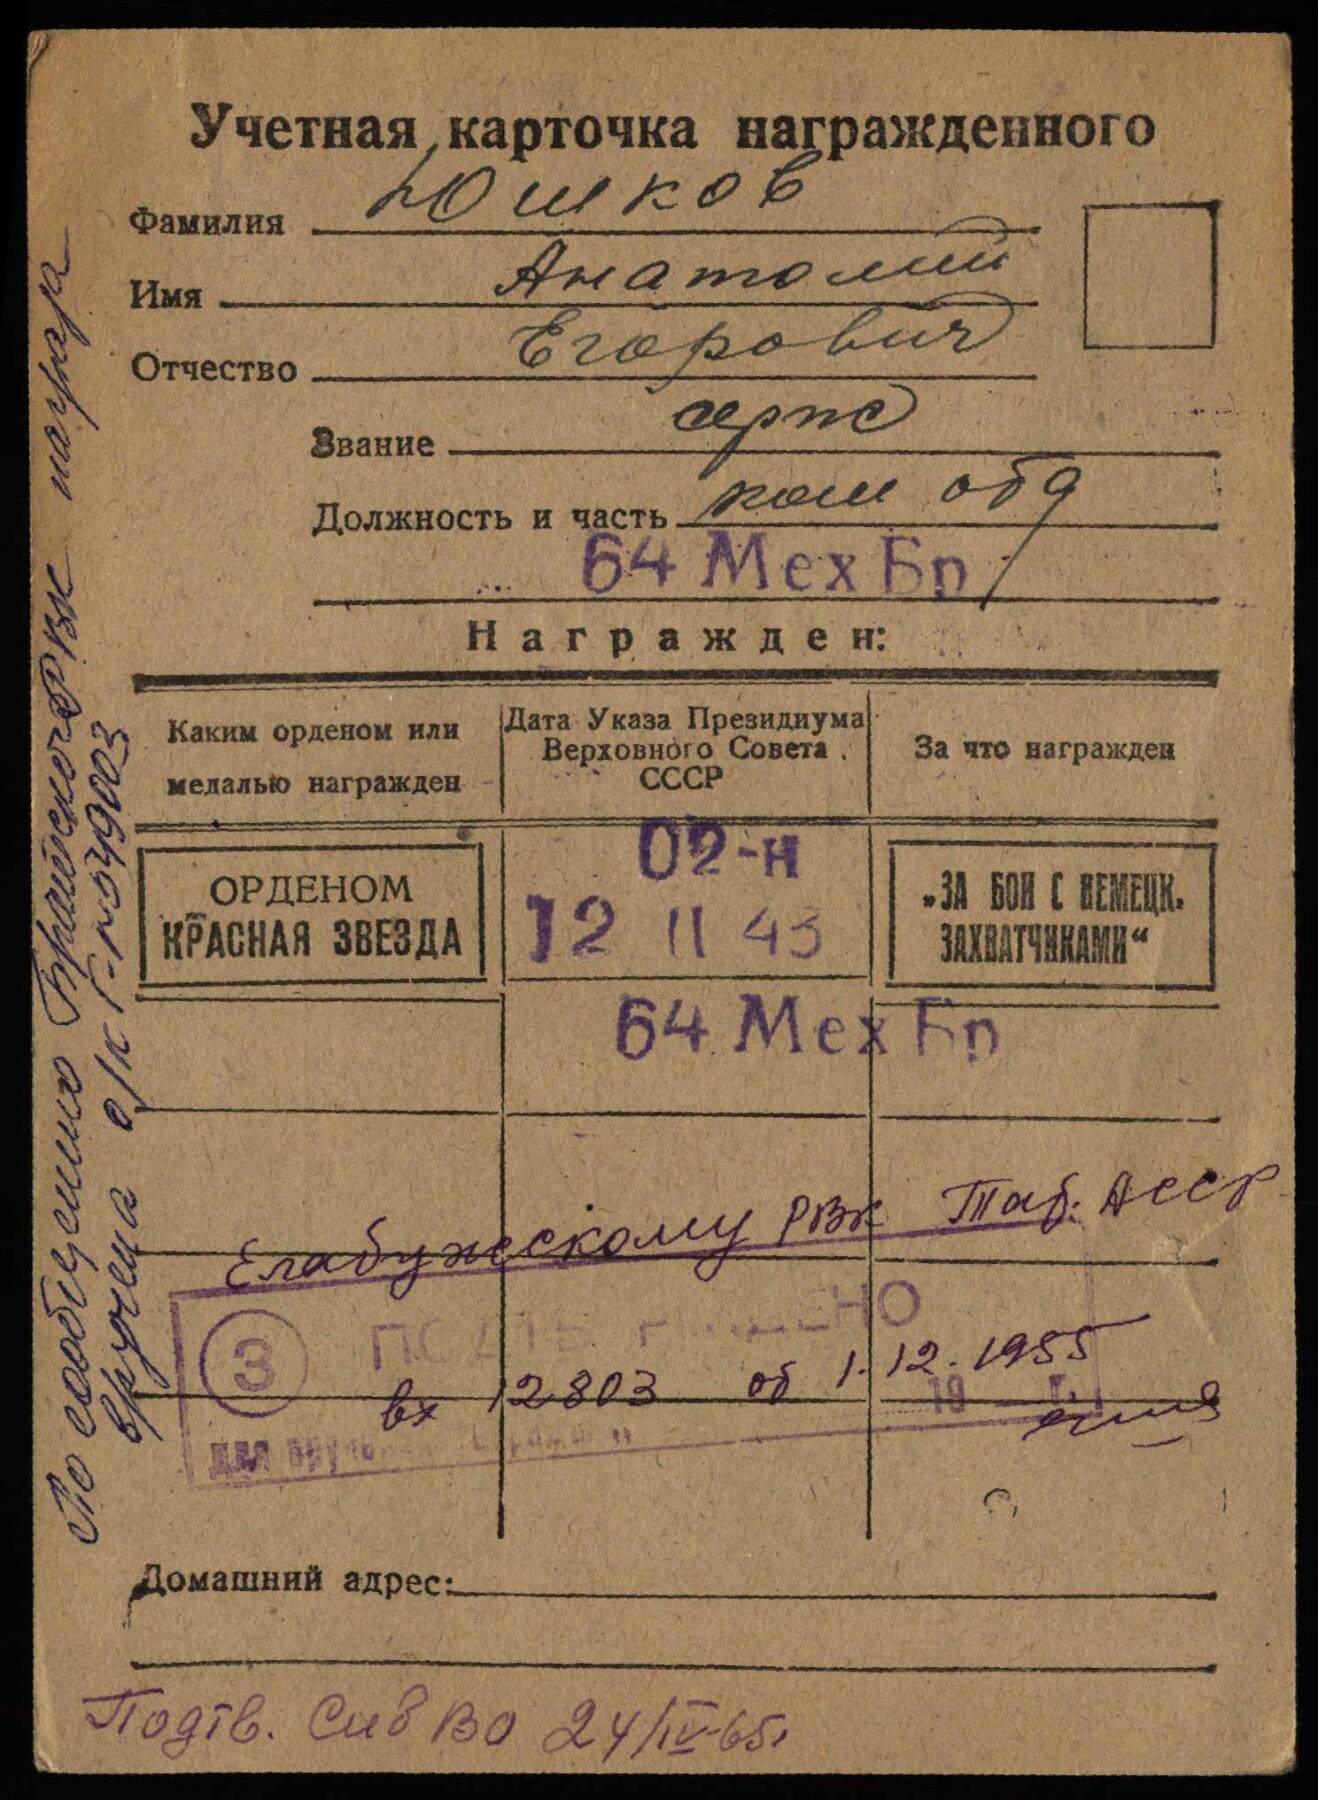 Учетная карточка награжденного
Фамилия Юшков
Имя Анатолий
Отчество Егорович
Звание серж
Должность и часть ком отд
64 МехБр
Награжден:
Каким орденом или медалью награжден
Дата Указа Президиума Верховного Совета СССР
За что награжден
ОРДЕНОМ
КРАСНАЯ ЗВЕЗДА
02-н
12 II 43
„ЗА БОИ С НЕМЕЦК.
ЗАХВАТЧИКАМИ“
64 МехБр
Елабужескому РВК Тат. АССР
3 ПОДТВЕРЖДЕНО
вх 12803 об 1.12.1955
19 г.
для вручения
Домашний адрес:
Подтв. СибВО 24/IV-65г
По сообщению Братского РВК награда
вручена о/к Г-№549003